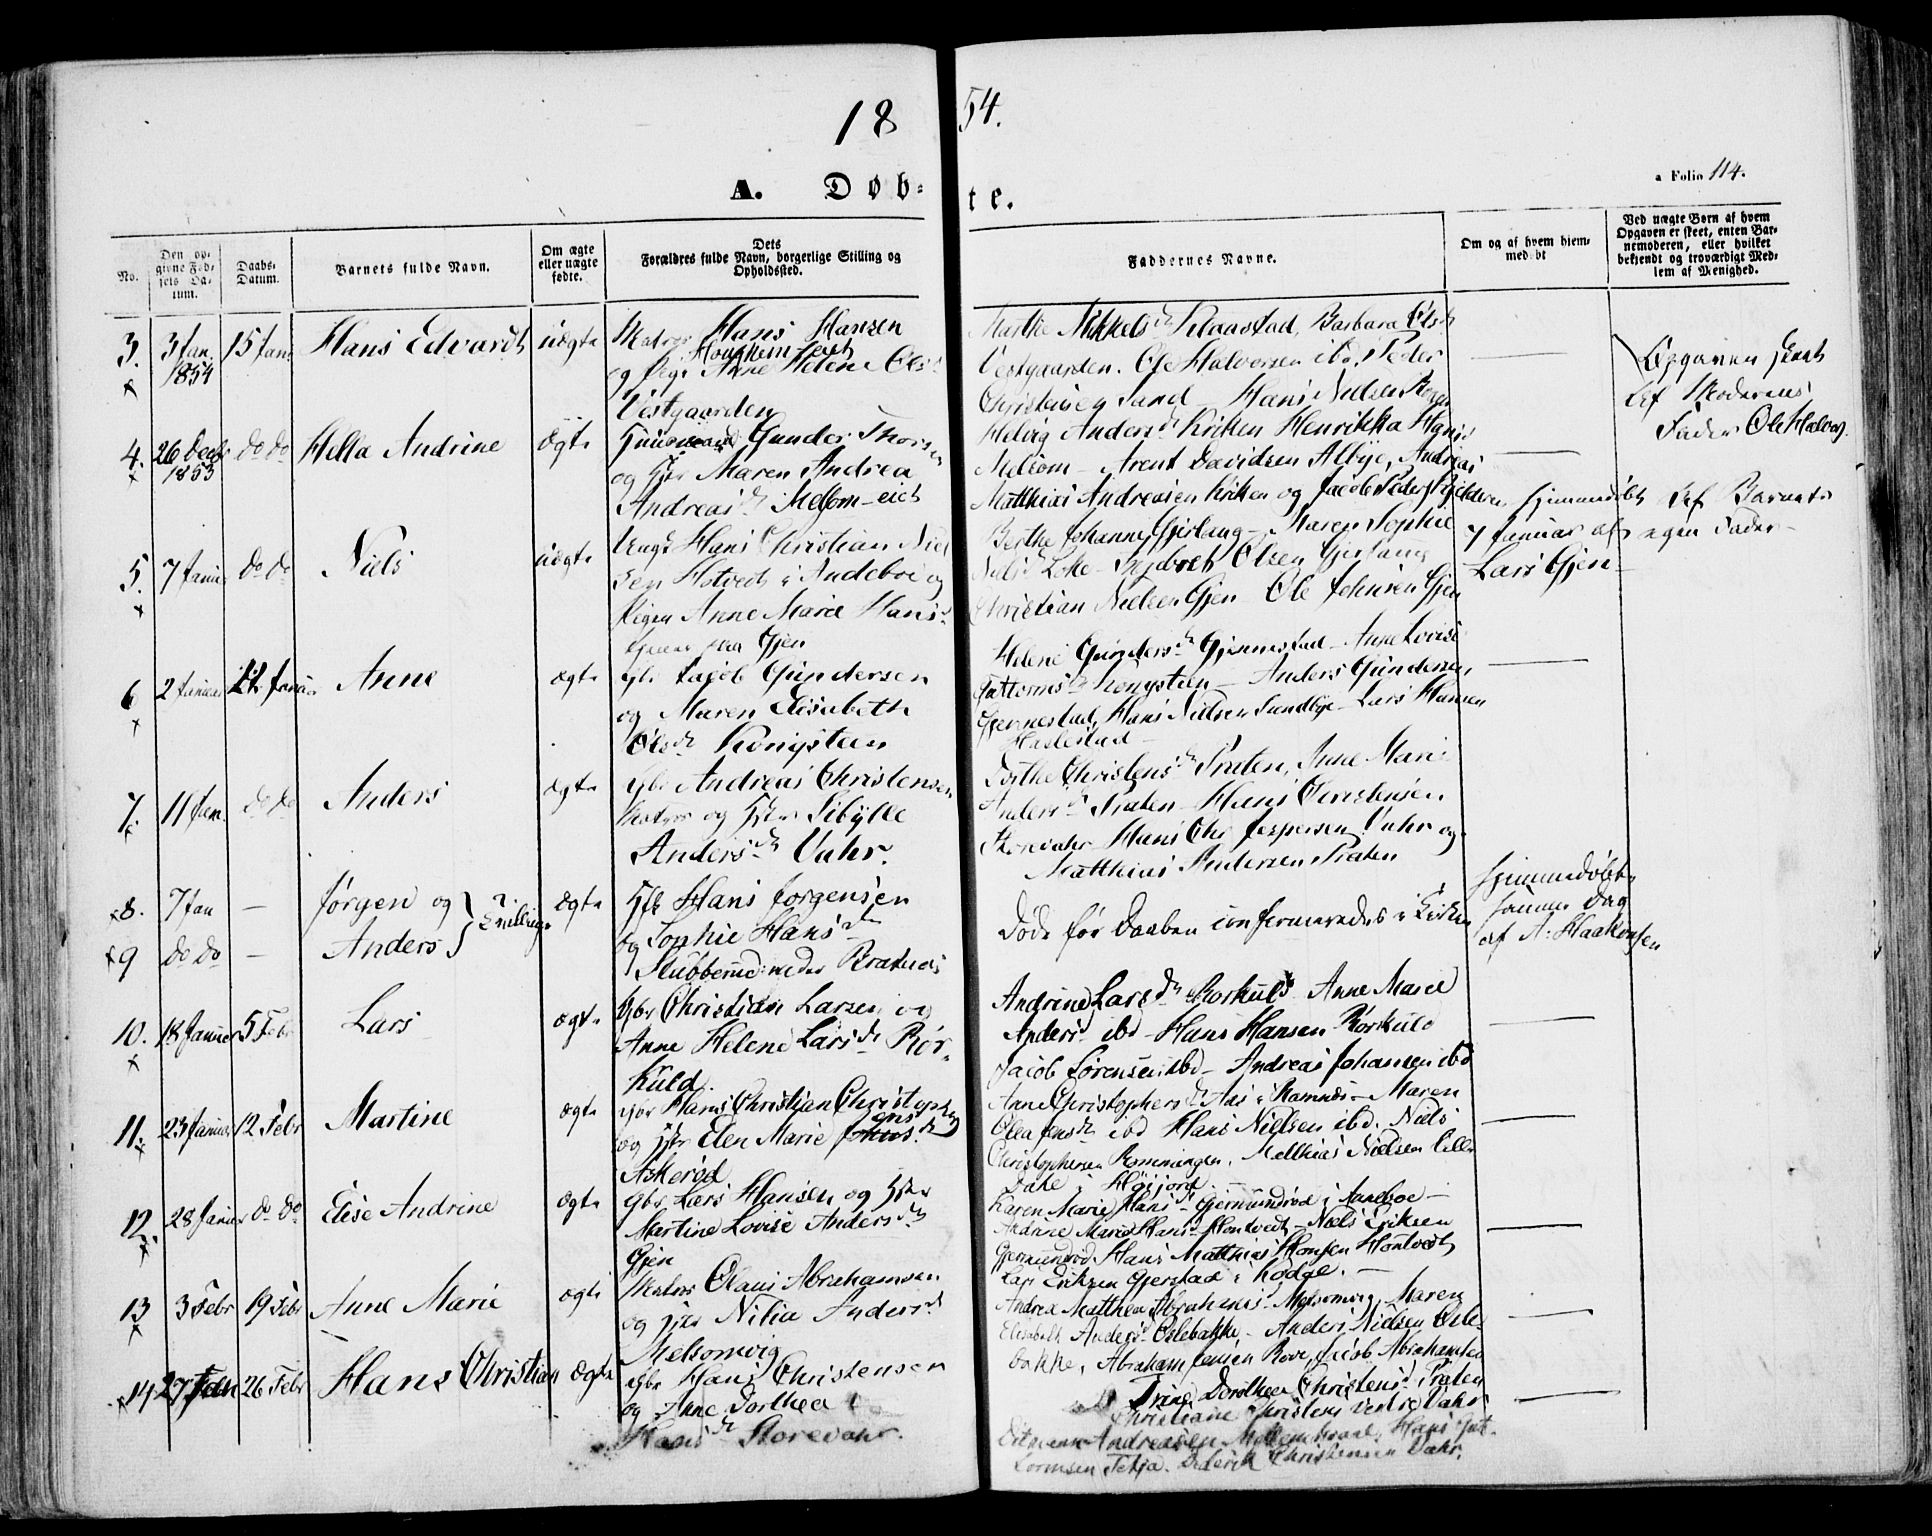 1854.
a Folio 114.
A. Døbte.
No.
Den opgivne Fødsels Datum.
Daabs-Datum.
Barnets fulde Navn.
Om ægte eller uægte fødte.
Dets Forældres fulde Navn, borgerlige Stilling og Opholdssted.
Faddernes Navne.
Om og af hvem hjemmedøbt
Ved uægte Børn af hvem Opgaven er skeet, enten Barnemoderen, eller hvilket bekjendt og troværdigt Medlem af Menighed.
3. 3 Jan. 1854 15 Jan Hans Edvardt uægte
Matros Hans Hansen
og Pige Anne Helene Ols
Vestgaarden
Marthe Nikkelsd Klaastad, Barbara Olsd
Vestgaarden. Ole Halvorsen ibd, Peder
Christensen Sand - Hans Nielsen
Opgaven skeet
af Moderens
Fader Ole Halvors.
4. 26 Decbr 1853 do do Hella Andrine ægte
Gunder Thorsen
og Hstr Maren Andrea
Andreasd Melsom-eiet
Helvig Andersd Kirken Henrikka Hansd
Melsom - Arent Davidsen Albye, Andreas
Matthias Andreasen Kirken og Jacob Peders
5. 7 Januar do do Niels uægte
Ungk Hans Christian Niel
sen Hotvedt i Andeboe og
Pigen Anne Marie Hansd
fra Gjen
Berthe Johanne Gjerlaug - Maren Sophie
Nielsd Loke - Ingebret Olsen Gjerlaug
Christian Nielsen Gjen Ole Johnsen Gjen
Hjemmedøbt
7 Januar af
Lars Gjen
af Barnets
egen Fader -
6 2 Januar Januar Anne ægte
Gbr Jacob Gundersen
og Maren Elisabeth
Olsd Kongsteen
Helene Gundersd Gjennestad - Anne Lovise
Guttormsd Kongsteen - Anders Gundersen
Gjennestad, Hans Nielsen Sundbye - Lars Hansen
Haslestad -
7. 11 Jan. do do Anders ægte
Gbr Andreas Christensen
Matros og Hstr Sibylle
Andersd Vahr.
Dorthe Christensd Præten, Anne Marie
Andersd Præten - Hans Christensen
Storevahr Hans Chr. Jespersen Vahr og
Matthias Andersen Præten
8. 7 Jan - Jørgen og
9 do do - Anders } 2 Tvillinger ægte
Gbr Hans Jørgensen
og Sophie Hansd
Stubberud neder
Døde før Daaben confermeredes i Kirken
Hjemmedøbt
samme Dag
af A. Haakonsen
10. 18 Januar 5 Febr Lars ægte
Gbr Christian Larsen og
Anne Helene Larsd Rør-
kuld.
Andrine Larsd Rorkuld Anne Marie
Andersd ibd - Hans Hansen Rørkuld
Jacob Sørensen ibd - Andreas Johansen ibd
11. 23 Januar 12 Febr Martine ægte
Gbr Hans Christian Christophersen
og Hstr Elen Marie Jensd
Askerød
Anne Christophersd Aas i Ramnæs - Maren
Olea Jensd ibd Hans Nielsen ibd. Niels
Christophersen Rommingen, Matthias Nielsen Lille
Dahl i Høijord.
12. 28 Januar do do Elise Andrine ægte
Gbr Lars Hansen og Hstr
Martine Lovise Andersd
Gjen
Karen Marie Hansd Gjermundrød i Andeboe -
Andrine Marie Hansd Hontvedt - Niels Eriksen
Gjermundrød Hans Matthias Hansen Hontvedt
Lars Eriksen Gjerstad i Kodge. -
13 3 Febr 19 Febr Anne Marie ægte
Matros Olaus Abrahamsen
og Hstr Nilia Andersd
Melsomvig
Andrea Matthea Abrahamsd Melsomvig, Maren
Elisabeth Andersd Oslebakke - Anders Nielsen Osle-
bakke, Abraham Jensen Rove, Jacob Abrahamsen
14 27 26 Febr Hans Christian ægte
Gbr Hans Christensen
og Anne Dorthea
Hansd Storevahr.
Trine Dorthea Christensd Præten
Christiane Christensd Vestre Vahr
Ditmann Andreasen Møllemhaal, Hans Gut-
tormsen Tekja. Diderik Christensen Vahr.